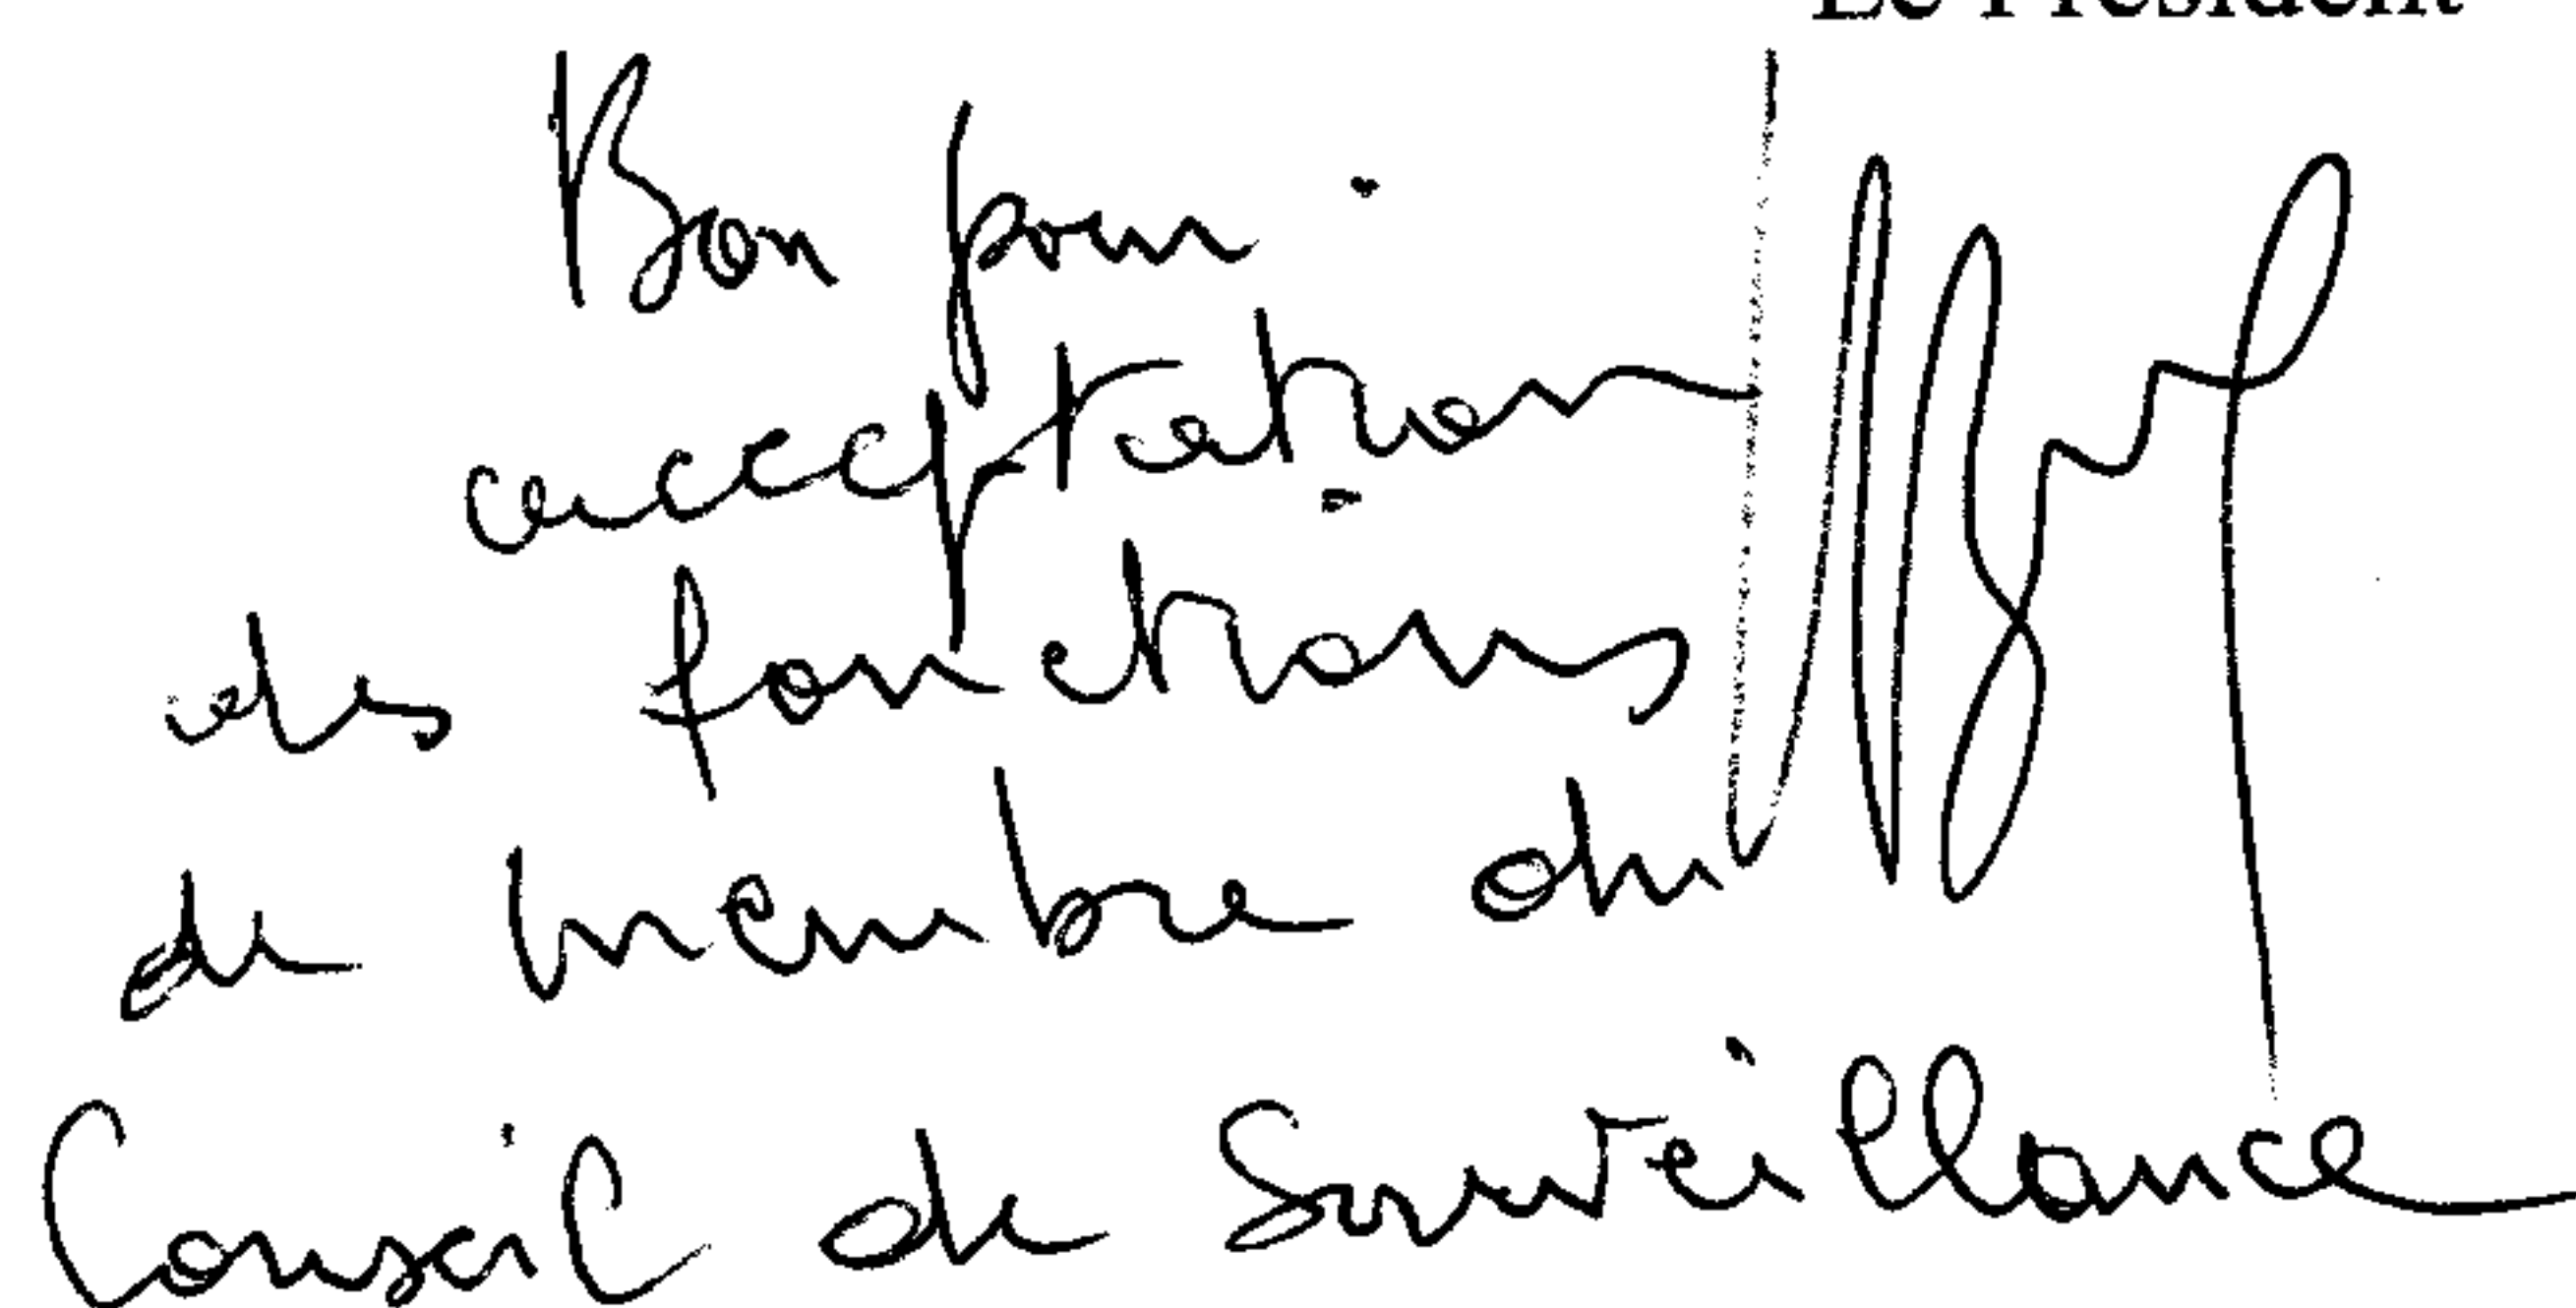 Le Président
Bon pour
acceptation
des fonctions
de membre du
Conseil de Surveillance